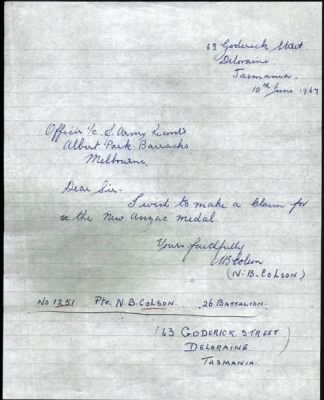 63 Goderick Street
Deloraine
Tasmania.
10th June 1967
Officer i/c
Army Records
Albert Park Barracks
Melbourne.
Dear Sir-
I wish to make a claim for
the New Anzac medal.
Yours faithfully
NBColson
(N.B.COLSON)
No 1351 Pte. N.B. COLSON. 26 BATTALION.
(63 GODERICK STREET)
DELORAINE
TASMANIA